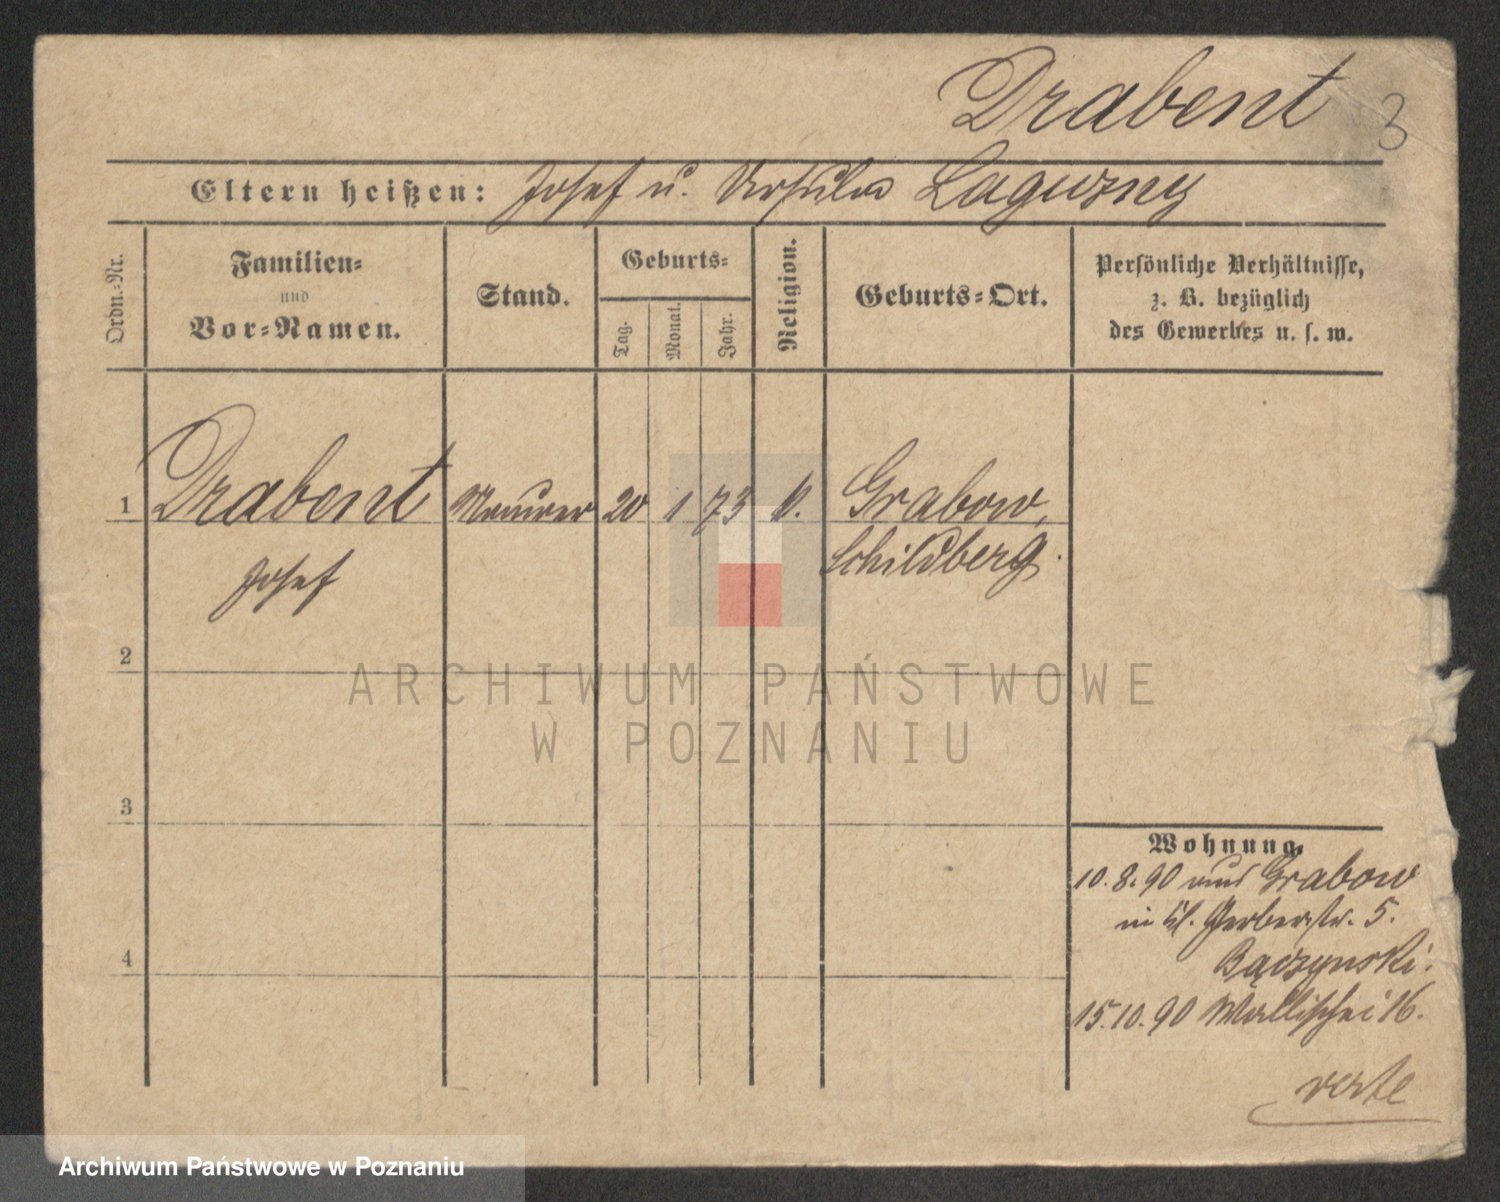 Drabent 3
Eltern heißen: Josef u. Ursula Laguzny
Ordn.-Nr.
Familien-
und
Vor-Namen.
Stand.
Geburts-
Tag.
Monat.
Jahr.
Religion.
Geburts-Ort.
Persönliche Verhältnisse,
z. B. bezüglich
des Gewerbes u. s. w.
1 Drabent Maurer 20 1 73 k. Grabow,
Josef Schildberg.
2
ARCHIWUM PAŃSTWOWE
W POZNANIU
3
Wohnung.
10. 8. 90 aus Grabow
in kl. Gerberstr. 5.
Bączynski.
4
15.10.90 Wallischei 16.
verte
Archiwum Państwowe w Poznaniu